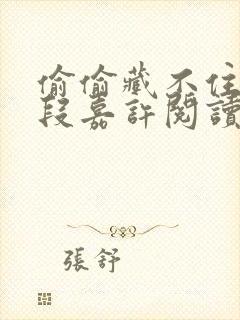 偷偷藏不住
段嘉許閱讀
張舒